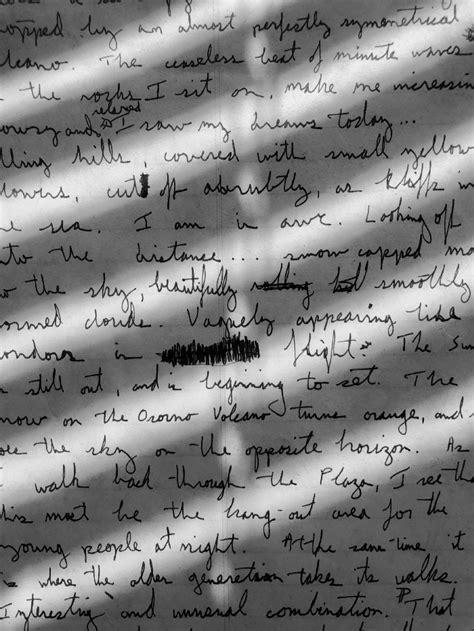 topped by an almost perfectly symmetrical
volcano. The ceaseless beat of minute waves
the rocks I sit on, make me increasin
relaxed
owsy and I saw my dreams today...
lling hills, covered with small yellow
lowers, cut off abruptly, as kliffs in
e sea. I am in awe. Looking off
nto the distance... snow capped mo
the sky, beautifully smoothly
ormed clouds. Vaguely appearing like
ondors in flight. The Sun
still out, and is beginning to set. The
now on the Osorno Volcano turns orange, and
oes the sky on the opposite horizon. As
walk back through the Plaza, I see tha
his must be the hang-out area for the
young people at night. At the same time it
is where the older generation takes its walks.
Interesting and unusual combination. That